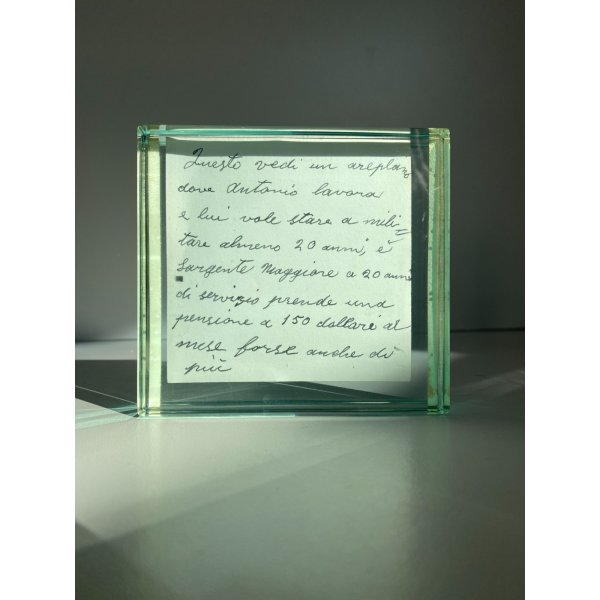 Questo vedi un areplano
dove Antonio lavora
e lui vole stare a mili-
tare almeno 20 anni, è
Sargente Maggiore a 20 anni
di servizio prende una
pensione a 150 dollari al
mese forse anche di
più